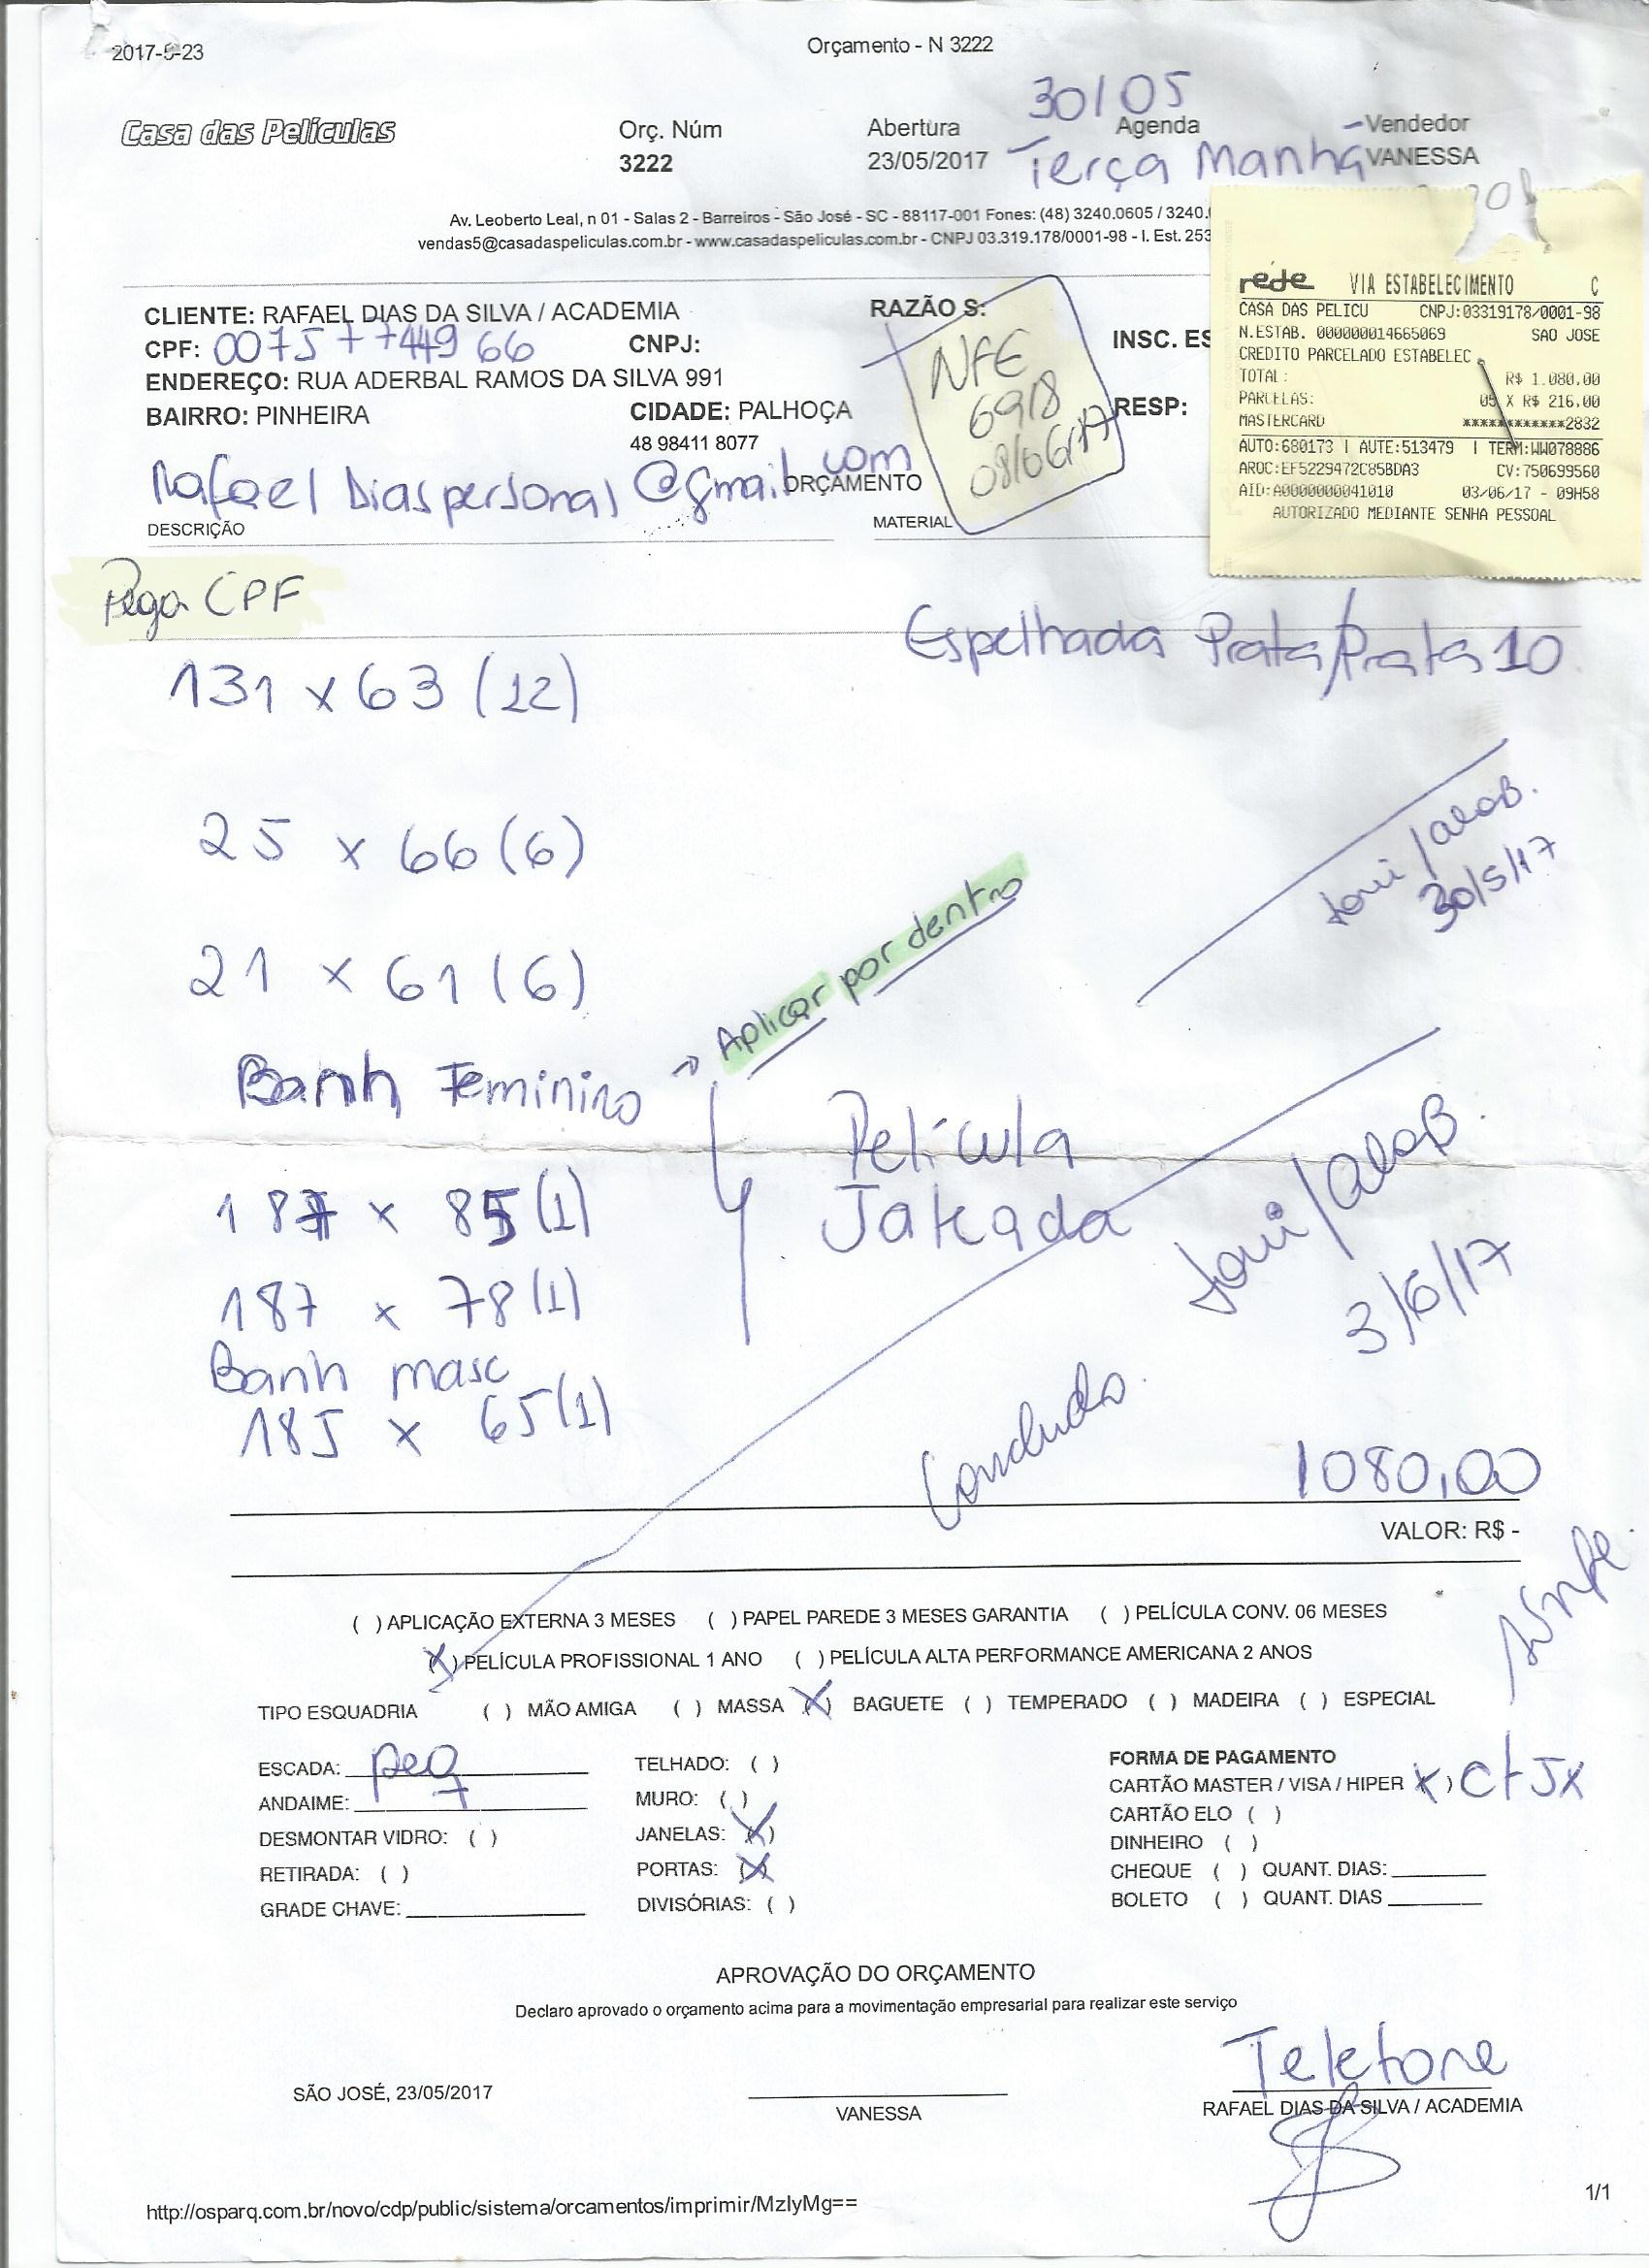 2017-5-23
Orçamento - N 3222
30/05
Casa das Películas
Orç. Núm
3222
Abertura
23/05/2017
Agenda
Terça Manhã
Vendedor
VANESSA
Av. Leoberto Leal, n 01 - Salas 2 - Barreiros - São José - SC - 88117-001 Fones: (48) 3240.0605 / 3240.
vendas5@casadaspeliculas.com.br - www.casadaspeliculas.com.br - CNPJ 03.319.178/0001-98 - I. Est. 253
rede VIA ESTABELECIMENTO C
CASA DAS PELICU CNPJ:03319178/0001-98
N.ESTAB. 000000014665069 SAO JOSE
CREDITO PARCELADO ESTABELEC
TOTAL: R$ 1.080,00
PARCELAS: 05 X R$ 216,00
MASTERCARD ************2832
AUTO:680173 | AUTE:513479 | TERM:WW078886
AROC:EF5229472C85BDA3 CV:750699560
AID:A0000000041010 03/06/17 - 09H58
AUTORIZADO MEDIANTE SENHA PESSOAL
CLIENTE: RAFAEL DIAS DA SILVA / ACADEMIA
RAZÃO S:
CPF: 007577449 66
CNPJ:
INSC. ES
ENDEREÇO: RUA ADERBAL RAMOS DA SILVA 991
BAIRRO: PINHEIRA
CIDADE: PALHOÇA
RESP:
48 98411 8077
NFE
6918
08/06/17
Rafael Diaspersonal@gmail.com
ORÇAMENTO
DESCRIÇÃO
MATERIAL
Pega CPF
Espelhada Prata/Prata 10
131 x 63 (12)
25 x 66 (6)
Joni/Jacob.
30/5/17
21 x 61 (6)
Aplicar por dentro
Banh Feminino
Película
Jateada
187 x 85 (1)
187 x 78 (1)
Joni/Jacob.
3/6/17
Banh masc
185 x 65 (1)
Concluído
1080,00
VALOR: R$ -
( ) APLICAÇÃO EXTERNA 3 MESES ( ) PAPEL PAREDE 3 MESES GARANTIA ( ) PELÍCULA CONV. 06 MESES
(X) PELÍCULA PROFISSIONAL 1 ANO ( ) PELÍCULA ALTA PERFORMANCE AMERICANA 2 ANOS
TIPO ESQUADRIA ( ) MÃO AMIGA ( ) MASSA (X) BAGUETE ( ) TEMPERADO ( ) MADEIRA ( ) ESPECIAL
ESCADA: peq
ANDAIME:
DESMONTAR VIDRO: ( )
RETIRADA: ( )
GRADE CHAVE:
TELHADO: ( )
MURO: ( )
JANELAS: (X)
PORTAS: (X)
DIVISÓRIAS: ( )
FORMA DE PAGAMENTO
CARTÃO MASTER / VISA / HIPER (X) Ct 5x
CARTÃO ELO ( )
DINHEIRO ( )
CHEQUE ( ) QUANT. DIAS:
BOLETO ( ) QUANT. DIAS
APROVAÇÃO DO ORÇAMENTO
Declaro aprovado o orçamento acima para a movimentação empresarial para realizar este serviço
Telefone
SÃO JOSÉ, 23/05/2017
VANESSA
RAFAEL DIAS DA SILVA / ACADEMIA
http://osparq.com.br/novo/cdp/public/sistema/orcamentos/imprimir/MzIyMg==
1/1